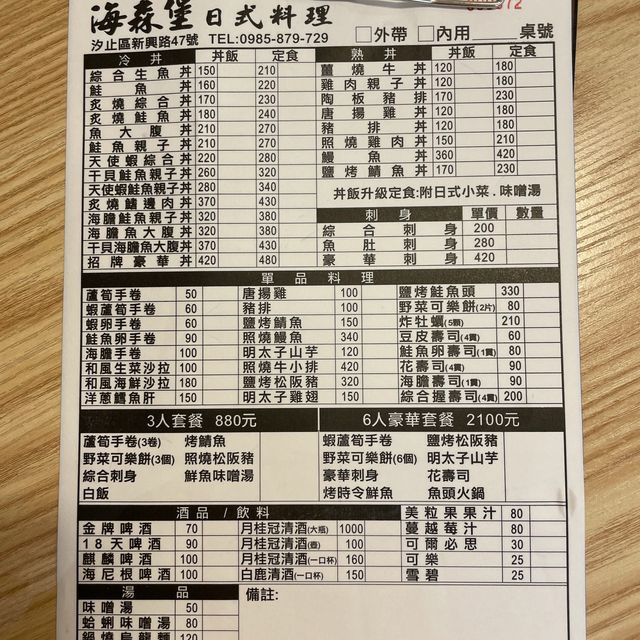 海森堡日式料理
汐止區新興路47號 TEL:0985-879-729 □外帶 □內用 桌號
冷丼 丼飯 定食
綜合生魚丼 150 210
鮭魚丼 160 220
炙燒綜合丼 170 230
炙燒鮭魚丼 180 240
魚大腹丼 210 270
鮭魚親子丼 210 270
天使蝦綜合丼 220 280
干貝鮭魚親子丼 260 340
天使蝦鮭魚親子丼 280 340
炙燒鰭邊肉丼 370 430
海膽鮭魚親子丼 320 380
海膽魚大腹丼 320 380
干貝海膽魚大腹丼 370 430
招牌豪華丼 420 480
熟丼 丼飯 定食
薑燒牛丼 120 180
雞肉親子丼 120 180
陶板豬排丼 170 230
唐揚雞丼 120 180
豬排丼 120 180
照燒雞肉丼 150 210
鰻魚丼 360 420
鹽烤鯖魚丼 170 230
丼飯升級定食:附日式小菜.味噌湯
刺身 單價 數量
綜合刺身 200
魚肚刺身 280
豪華刺身 420
單品料理
蘆筍手卷 50 唐揚雞 100 鹽烤鮭魚頭 330
蝦蘆筍手卷 60 豬排 100 野菜可樂餅(2片) 80
蝦卵手卷 60 鹽烤鯖魚 150 炸牡蠣(5顆) 210
鮭魚卵手卷 90 照燒鰻魚 340 豆皮壽司(4貫) 60
海膽手卷 100 明太子山芋 120 鮭魚卵壽司(1貫) 80
和風生菜沙拉 100 照燒牛小排 420 花壽司(4貫) 90
和風海鮮沙拉 180 鹽烤松阪豬 320 海膽壽司(1貫) 90
洋蔥鱈魚肝 150 明太子雞翅 150 綜合握壽司(4貫) 200
3人套餐 880元
蘆筍手卷(3卷) 烤鯖魚
野菜可樂餅(3個) 照燒松阪豬
綜合刺身 鮮魚味噌湯
白飯
6人豪華套餐 2100元
蝦蘆筍手卷 鹽烤松阪豬
野菜可樂餅(6個) 明太子山芋
豪華刺身 花壽司
烤時令鮮魚 魚頭火鍋
酒品/飲料
金牌啤酒 70 月桂冠清酒(大瓶) 1000 美粒果果汁 80
18天啤酒 90 月桂冠清酒(壺) 100 蔓越莓汁 80
麒麟啤酒 100 月桂冠清酒(一口杯) 160 可爾必思 30
海尼根啤酒 100 白鹿清酒(一口杯) 150 可樂 25
雪碧 25
湯品
味噌湯 50
蛤蜊味噌湯 80
鍋燒烏龍麵 120
備註: